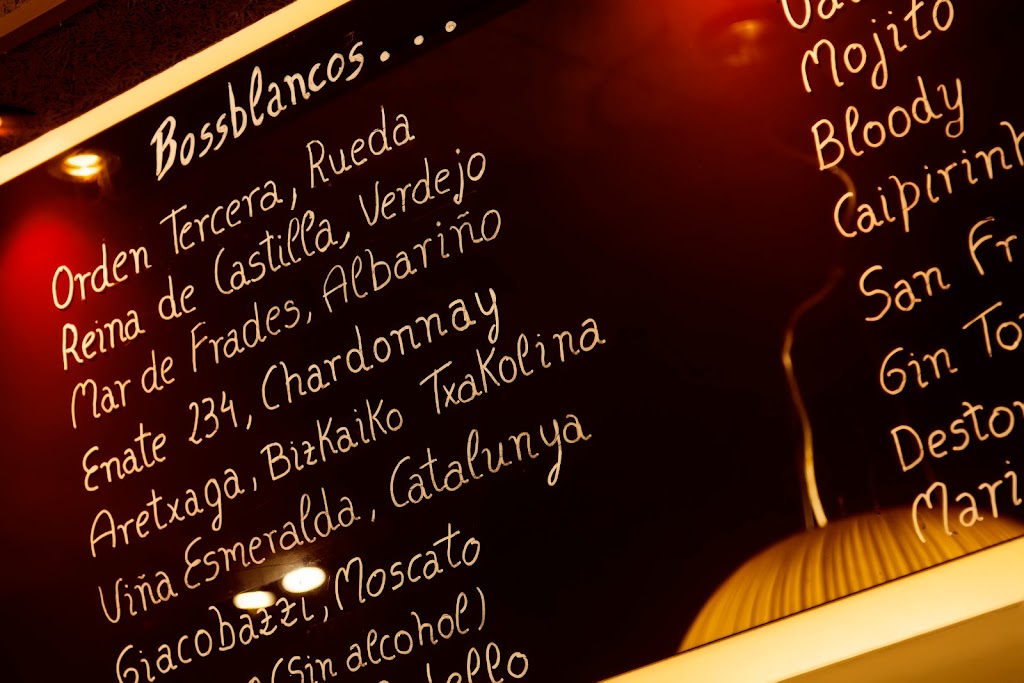 Bossblancos...
Orden Tercera, Rueda
Reina de Castilla, Verdejo
Mar de Frades, Albariño
Enate 234, Chardonnay
Aretxaga, Bizkaiko Txakolina
Viña Esmeralda, Catalunya
Giacobazzi, Moscato
(Sin alcohol)
Mojito
Bloody
San
Gin